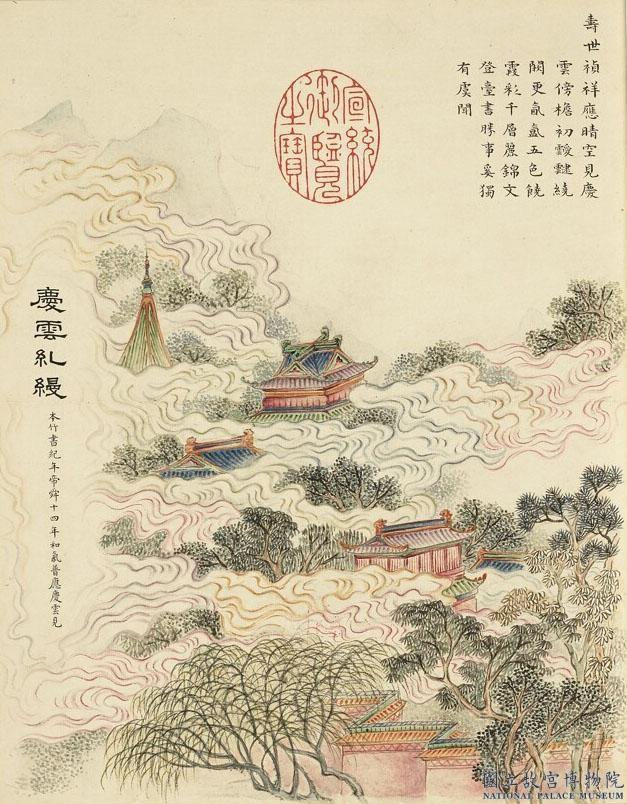 壽世禎祥應晴空見慶
雲傍檐初靉靆繞
闕更氤氳五色饒
霞彩千層麗錦文
登臺書勝事奚獨
有虞聞
宣統
御覽
之寶
慶雲糺縵
本竹書紀年帝舜十四年和氣普應慶雲見
國立故宮博物院
NATIONAL PALACE MUSEUM